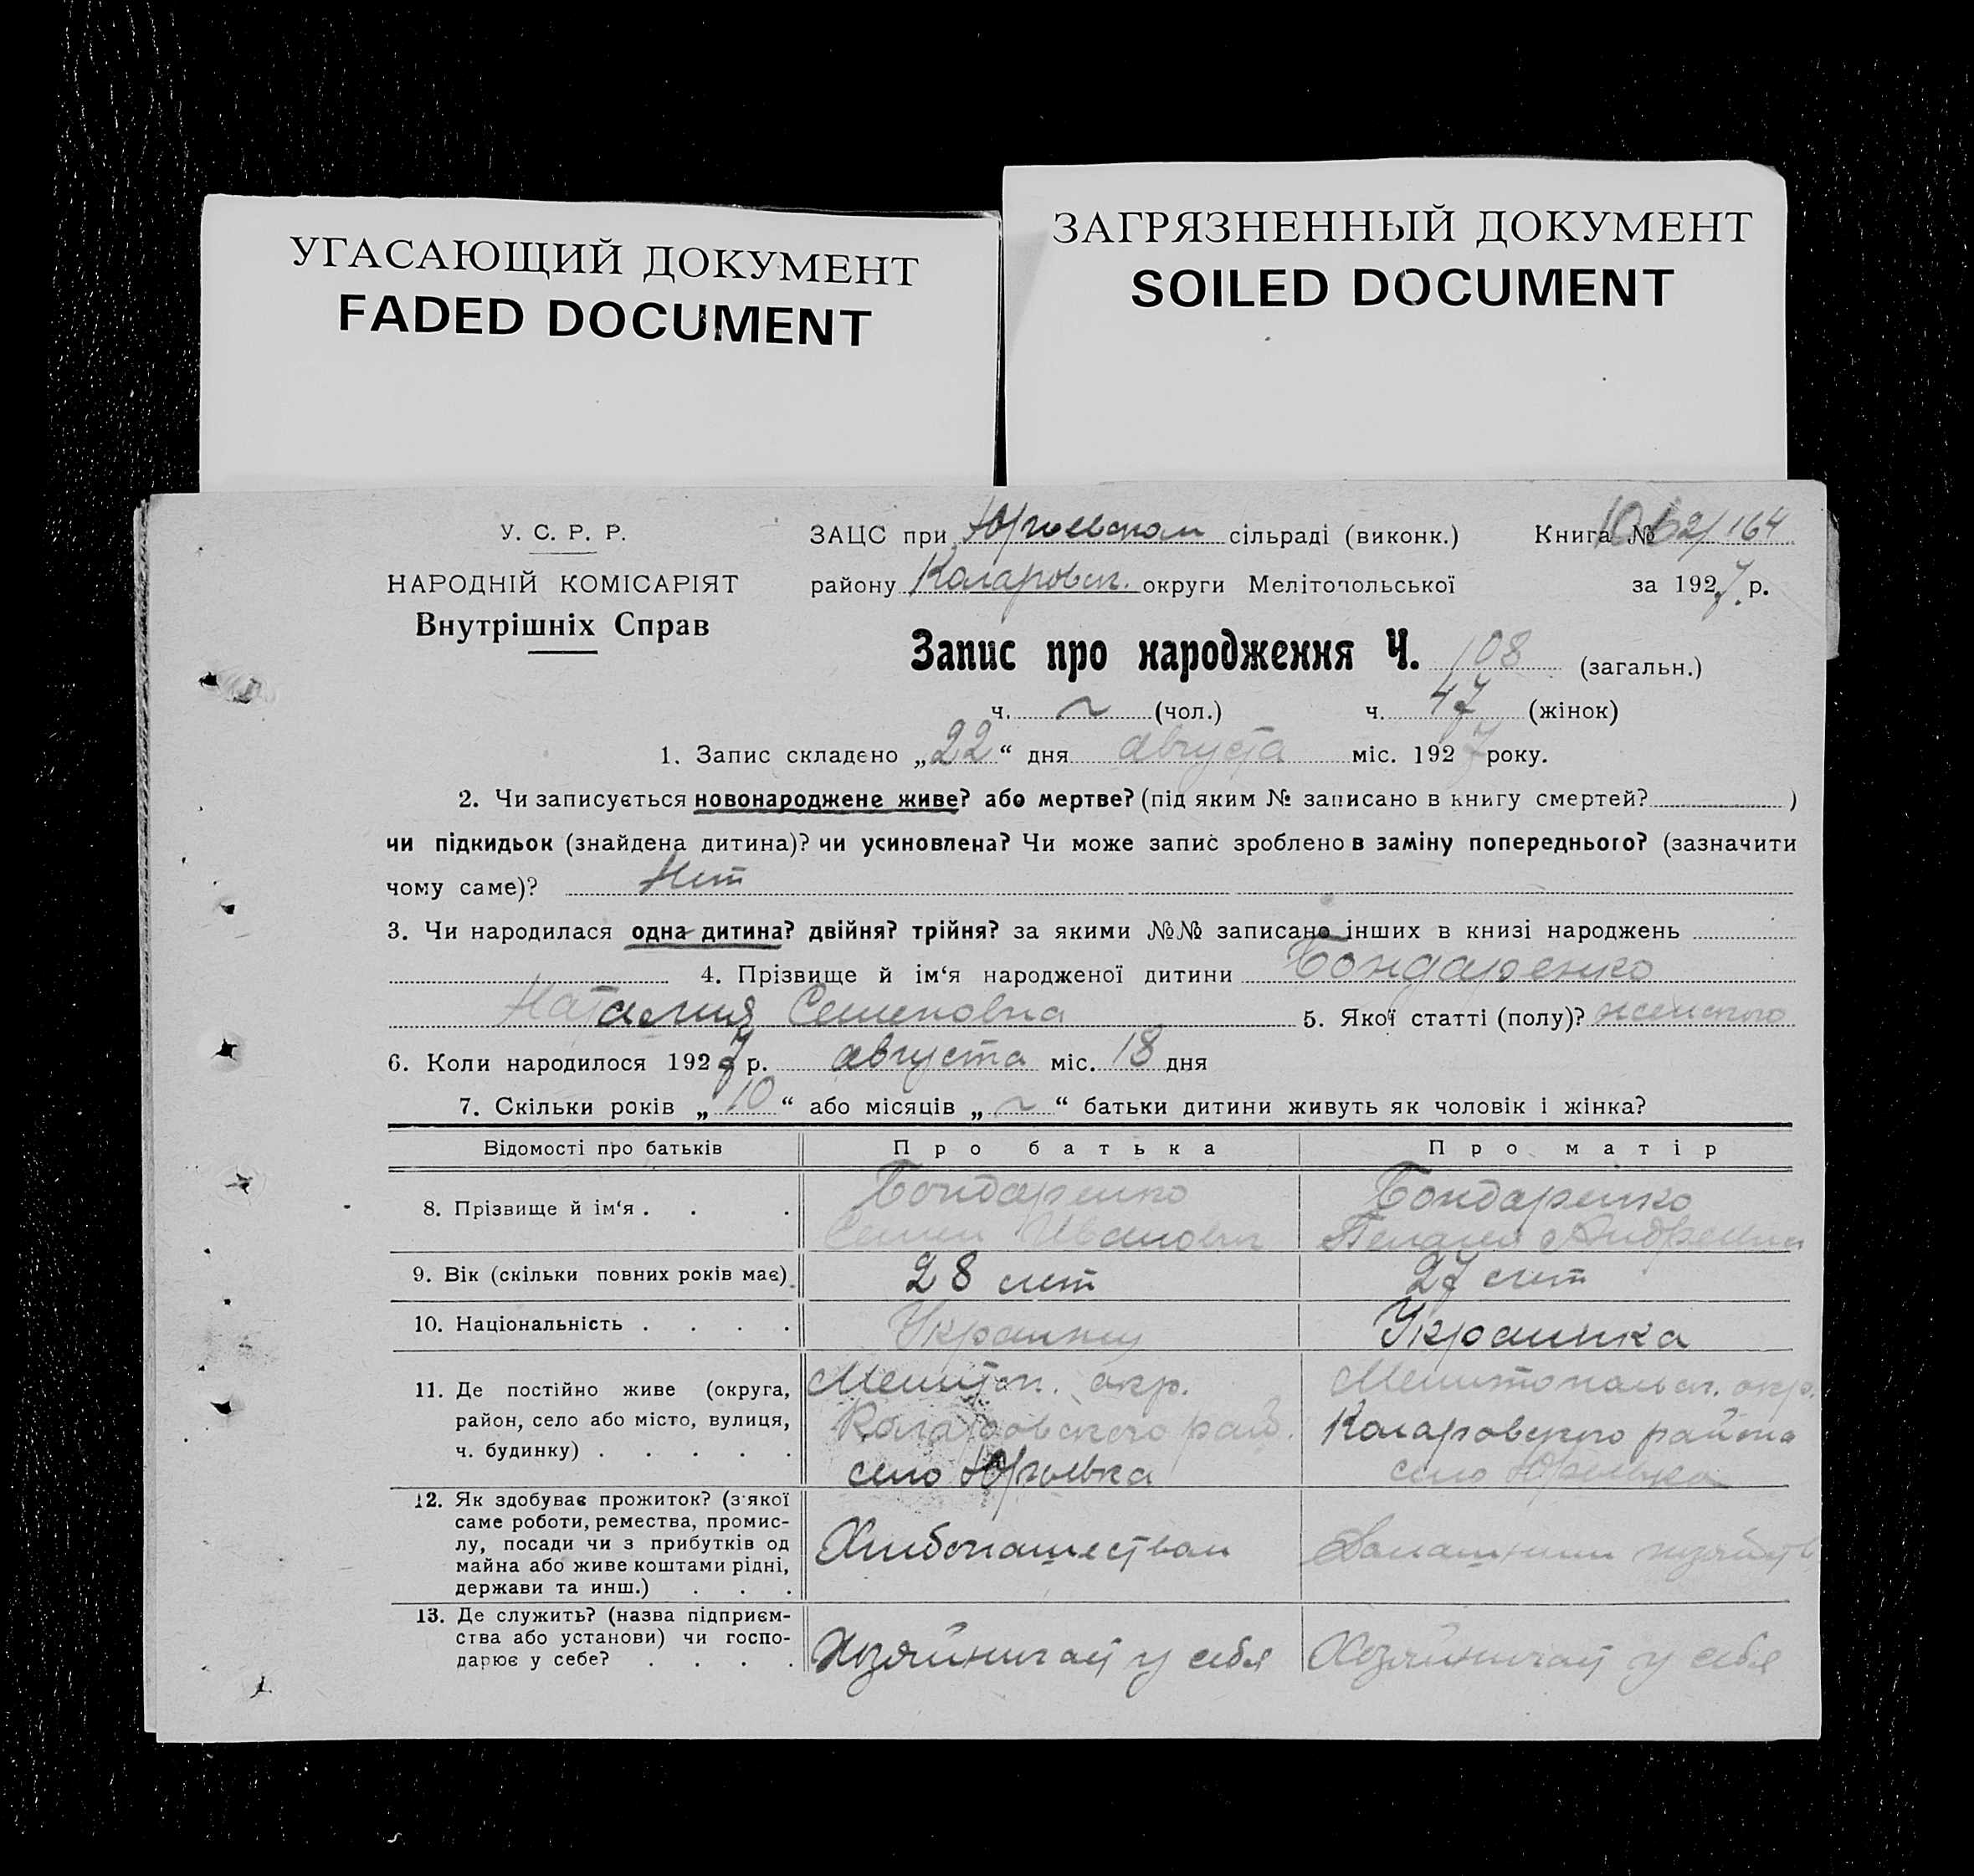 УГАСАЮЩИЙ ДОКУМЕНТ
FADED DOCUMENT
ЗАГРЯЗНЕННЫЙ ДОКУМЕНТ
SOILED DOCUMENT
У. С. Р. Р.
НАРОДНІЙ КОМІСАРІЯТ
Внутрішніх Справ
ЗАЦС при Юрьевском сільраді (виконк.) Книга № 1062/164
району Коларовск. округи Мелітопольської за 1927 р.
Запис про народження Ч. 108 (загальн.)
ч. ~ (чол.) ч. 47 (жінок)
1. Запис складено „22“ дня августа міс. 1927 року.
2. Чи записується новонароджене живе? або мертве? (під яким № записано в книгу смертей? )
чи підкидьок (знайдена дитина)? чи усиновлена? Чи може запис зроблено в заміну попереднього? (зазначити
чому саме)? Нет
3. Чи народилася одна дитина? двійня? трійня? за якими №№ записано інших в книзі народжень
4. Прізвище й ім‘я народженої дитини Бондаренко
Наталия Семеновна 5. Якої статті (полу)? женского
6. Коли народилося 1927 р. августа міс. 18 дня
7. Скільки років „10“ або місяців „~“ батьки дитини живуть як чоловік і жінка?
Відомості про батьків Про батька Про матір
8. Прізвище й ім‘я . . . Бондаренко Семен Иванович Бондаренко Андреевна
9. Вік (скільки повних років має). 28 лет 27 лет
10. Національність . . . . Украинец Украинка
11. Де постійно живе (округа, Мелитоп. окр. Мелитопольск. окр.
район, село або місто, вулиця, Коларовского рай. Коларовского района
ч. будинку) . . . . . село Юрьевка село Юрьевка
12. Як здобуває прожиток? (з якої
саме роботи, ремества, промис-
лу, посади чи з прибутків од
майна або живе коштами рідні,
держави та инш.) . . . Хлебопашеством Домашним хозяйств
13. Де служить? (назва підприєм-
ства або установи) чи госпо-
дарює у себе? . . . . Хозяйничает у себя Хозяйничает у себя